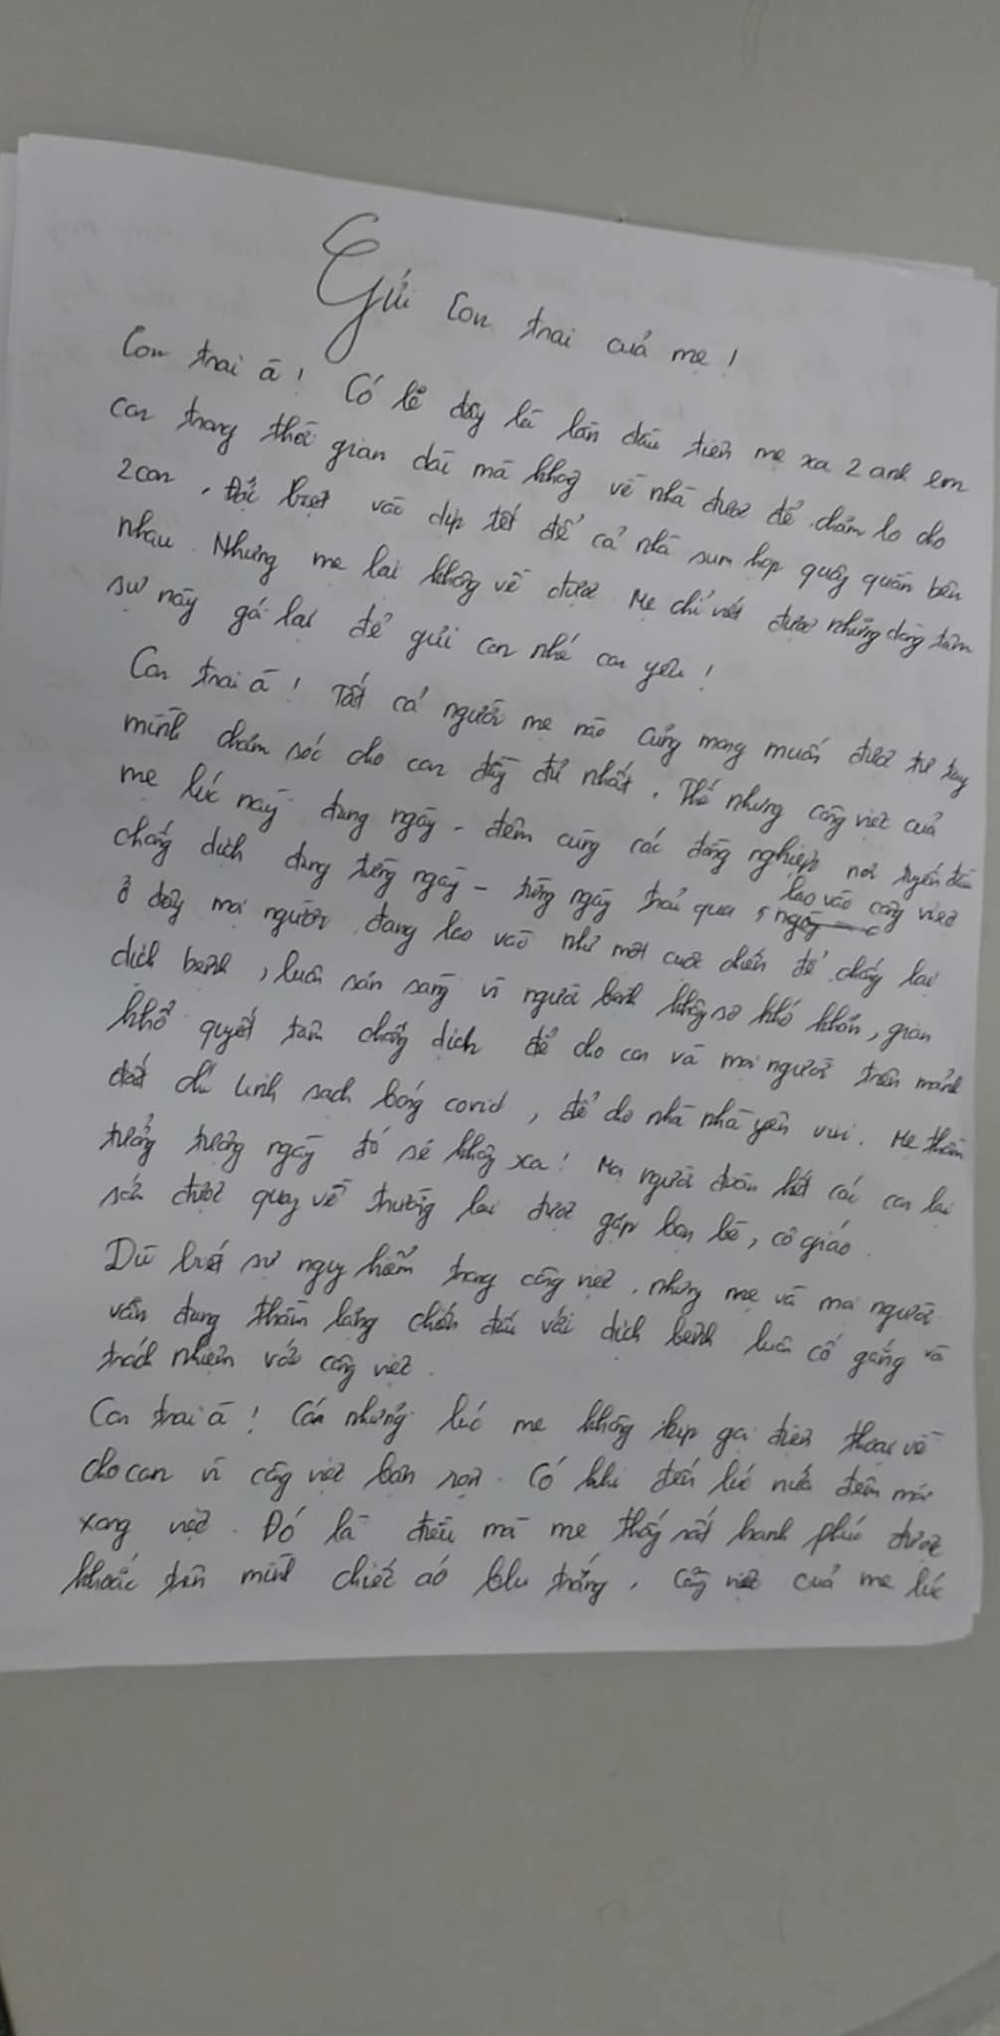 Gửi con trai của mẹ !
Con trai à ! Có lẽ đây là lần đầu tiên mẹ xa 2 anh em
con trong thời gian dài mà không về nhà được để chăm lo cho
2 con , Đặc biệt vào dịp tết để cả nhà sum họp quây quần bên
nhau . Nhưng mẹ lại không về được Mẹ chỉ viết được những dòng tâm
sự này gá lại để gửi con nhé con yêu !
Con trai à ! Tất cả người mẹ nào cũng mong muốn được tự tay
mình chăm sóc cho con đầy đủ nhất . Thế nhưng công việc của
mẹ lúc này đang ngày - đêm cùng các đồng nghiệp nơi tuyến đầu
chống dịch đang từng ngày - từng ngày trải qua , lao vào công việc
ở đây mọi người đang lao vào như một cuộc chiến để chống lại
dịch bệnh , luôn sẵn sàng vì người bệnh không sợ khó khăn , gian
khổ quyết tâm chống dịch để cho con và mọi người trên mảnh
đất chí linh sạch bóng covid , để cho nhà nhà yên vui . Mẹ thầm
tưởng tượng ngày đó sẽ không xa ! Mọi người đoàn kết các con lại
sớm được quay về trường lại được gặp bạn bè , cô giáo .
Dù biết sự nguy hiểm trong công việc , nhưng mẹ và mọi người
vẫn đang thầm lặng chiến đấu với dịch bệnh luôn cố gắng và
trách nhiệm với công việc .
Con trai à ! Có những lúc mẹ không kịp gọi điện thoại về
cho con vì công việc bận rộn . Có khi đến lúc nửa đêm mới
xong việc . Đó là điều mà mẹ thấy rất hạnh phúc được
khoác trên mình chiếc áo blu trắng , công việc của mẹ lúc